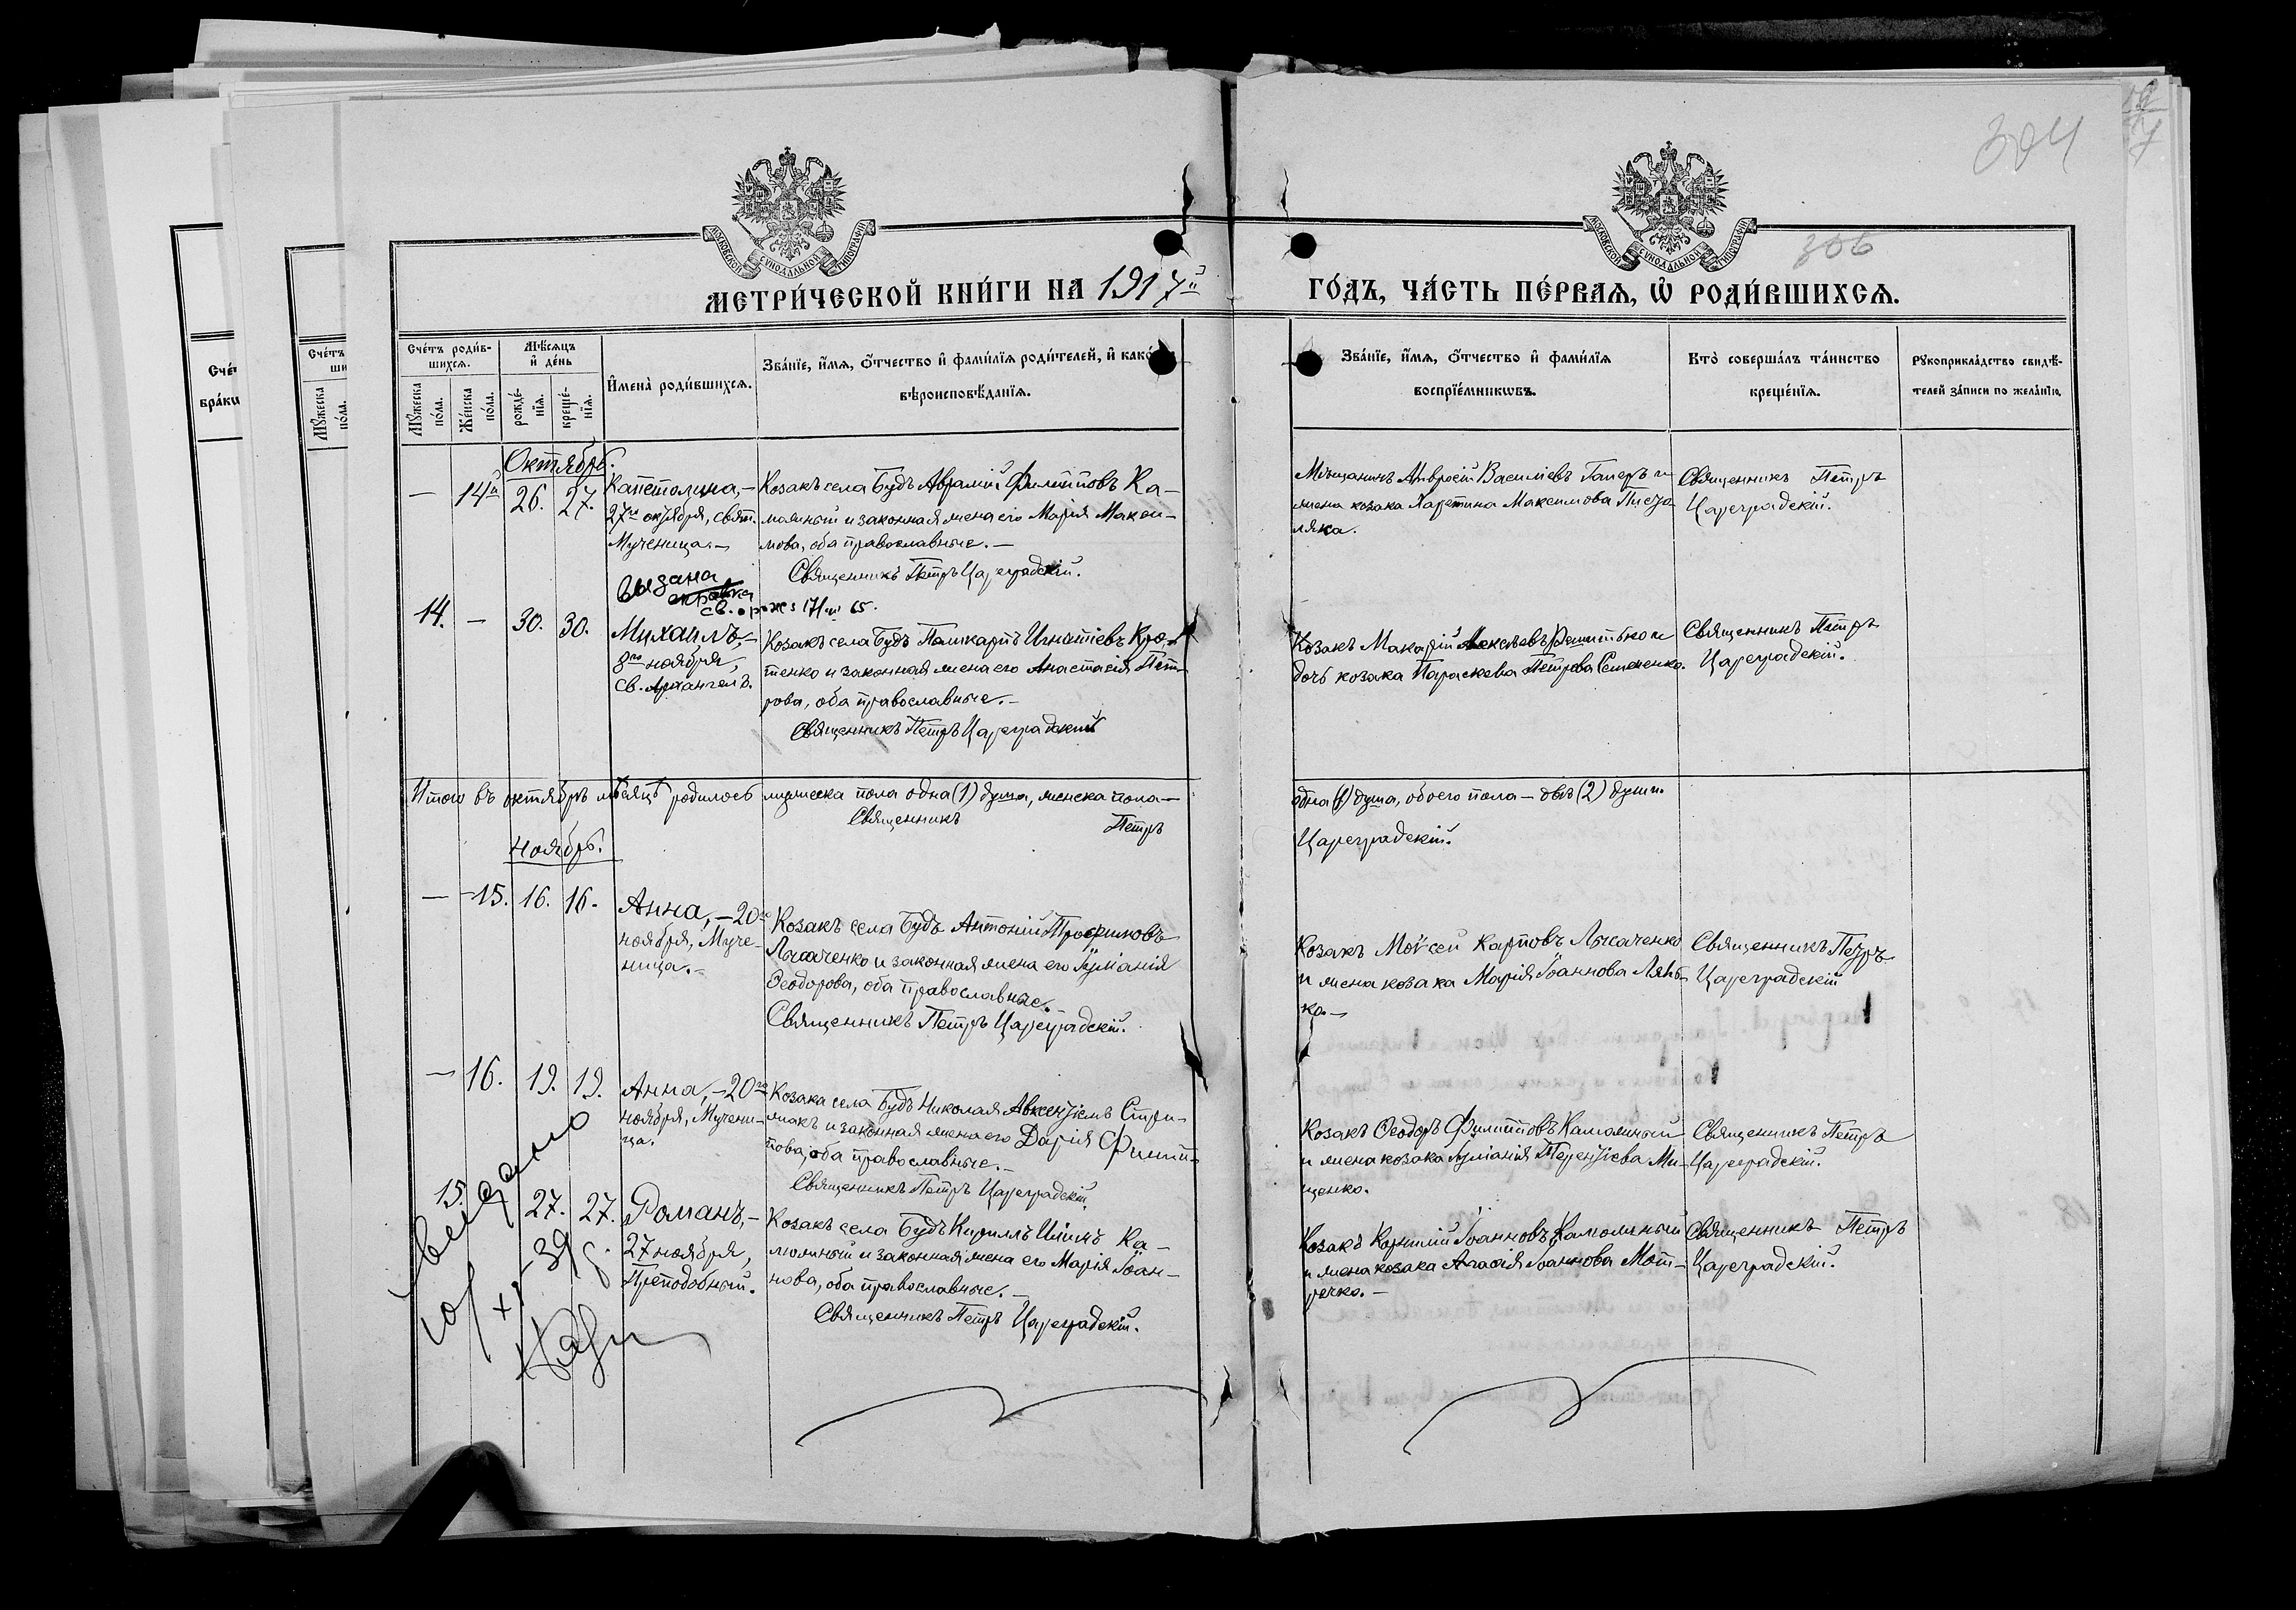 304
306
МОСКОВСКОЙ СУНОДАЛЬНОЙ ТИПОГРАФІИ
МОСКОВСКОЙ СУНОДАЛЬНОЙ ТИПОГРАФІИ
МЕТРИ́ЧЕСКОЙ КНИ́ГИ НА 1917й
ГО́ДЪ, ЧА́СТЬ ПЕ́РВАѦ, Ѡ҆ РОДИ́ВШИХСѦ.
Сче́тъ роди́в-
шихсѧ.
Мꙋ́жеска по́ла.
Же́нска по́ла.
Мѣ́сѧцъ и҆ де́нь
рожде́-
нїѧ.
креще́-
нїѧ.
И҆мена̀ роди́вшихсѧ.
Зва́нїе, и҆́мѧ, ѻ҆́тчество и҆ фами́лїѧ роди́телей, и҆ како́
вѣроисповѣ́данїѧ.
Зва́нїе, и҆́мѧ, ѻ҆́тчество и҆ фами́лїѧ
воспрїе́мникѡвъ.
Кто̀ соверша́лъ та́инство
креще́нїѧ.
Рꙋкоприкла́дство свидѣ́-
телей за́писи по жела́нїю.
Октябрь.
— 14й 26. 27.
Капетолина,—
27го октября, свят.
Мученица.—
Козакъ села Будъ Аврамій Филипповъ Ка-
маяный и законная жена его Марія Макси-
мова, оба православные.—
Священникъ Петръ Цареградскій.
Мѣщанинъ Амвросій Василіевъ Гаперъ и
жена козака Харетина Максимова Писа-
ляка.
Священникъ Петръ
Цареградскій.
выдана
справка
св. о рож.
14. — 30. 30.
Михаилъ,—
8го ноября,
св. Архангелъ.
Козакъ села Будъ Панкратъ Игнатіевъ
тенко и законная жена его Анастасія Пет-
рова, оба православные.—
Священникъ Петръ Цареградскій
Козакъ Макарій Алексѣевъ и
дочь козака Параскева Петрова Семененко.
Священникъ Петръ
Цареградскій.
Итого въ октябрѣ мѣсяцѣ родилось мужеска пола одна (1) душа, женска пола—
одна (1) душа, обоего пола — двѣ (2) души.
Священникъ Петръ
Цареградскій.
Ноябрь.
— 15. 16. 16.
Анна,—20го
ноября, Муче-
ница.—
Козакъ села Будъ Антоній Трофимовъ
Лысаченко и законная жена его Іуліанія
Ѳеодорова, оба православные.
Священникъ Петръ Цареградскій.
Козакъ Моѵсей Карповъ Лысаченко
и жена козака Марія Іоаннова Лянь-
ка.—
Священникъ Петръ
Цареградскій
— 16. 19. 19.
Анна,—20го
ноября, Мучени-
ца.
Козака села Будъ Николая Авксентіевъ Стри-
жакъ и законная жена его Дарія Филип-
пова, оба православные.—
Священникъ Петръ Цареградскій
Козакъ Ѳеодоръ Филипповъ Камаяный
и жена козака Іуліанія Терентіева Ми-
щенко.
Священникъ Петръ
Цареградскій.
15. 27. 27.
Романъ,—
27 ноября,
Преподобный.
Козакъ села Будъ Кириллъ Ильинъ Ка-
маяный и законная жена его Марія Іоан-
нова, оба православные.—
Священникъ Петръ Цареградскій.
Козакъ Корнилій Іоанновъ Камаяный
и жена козака Агафія Іоаннова Мот-
речко.—
Священникъ Петръ
Цареградскій.
выдано